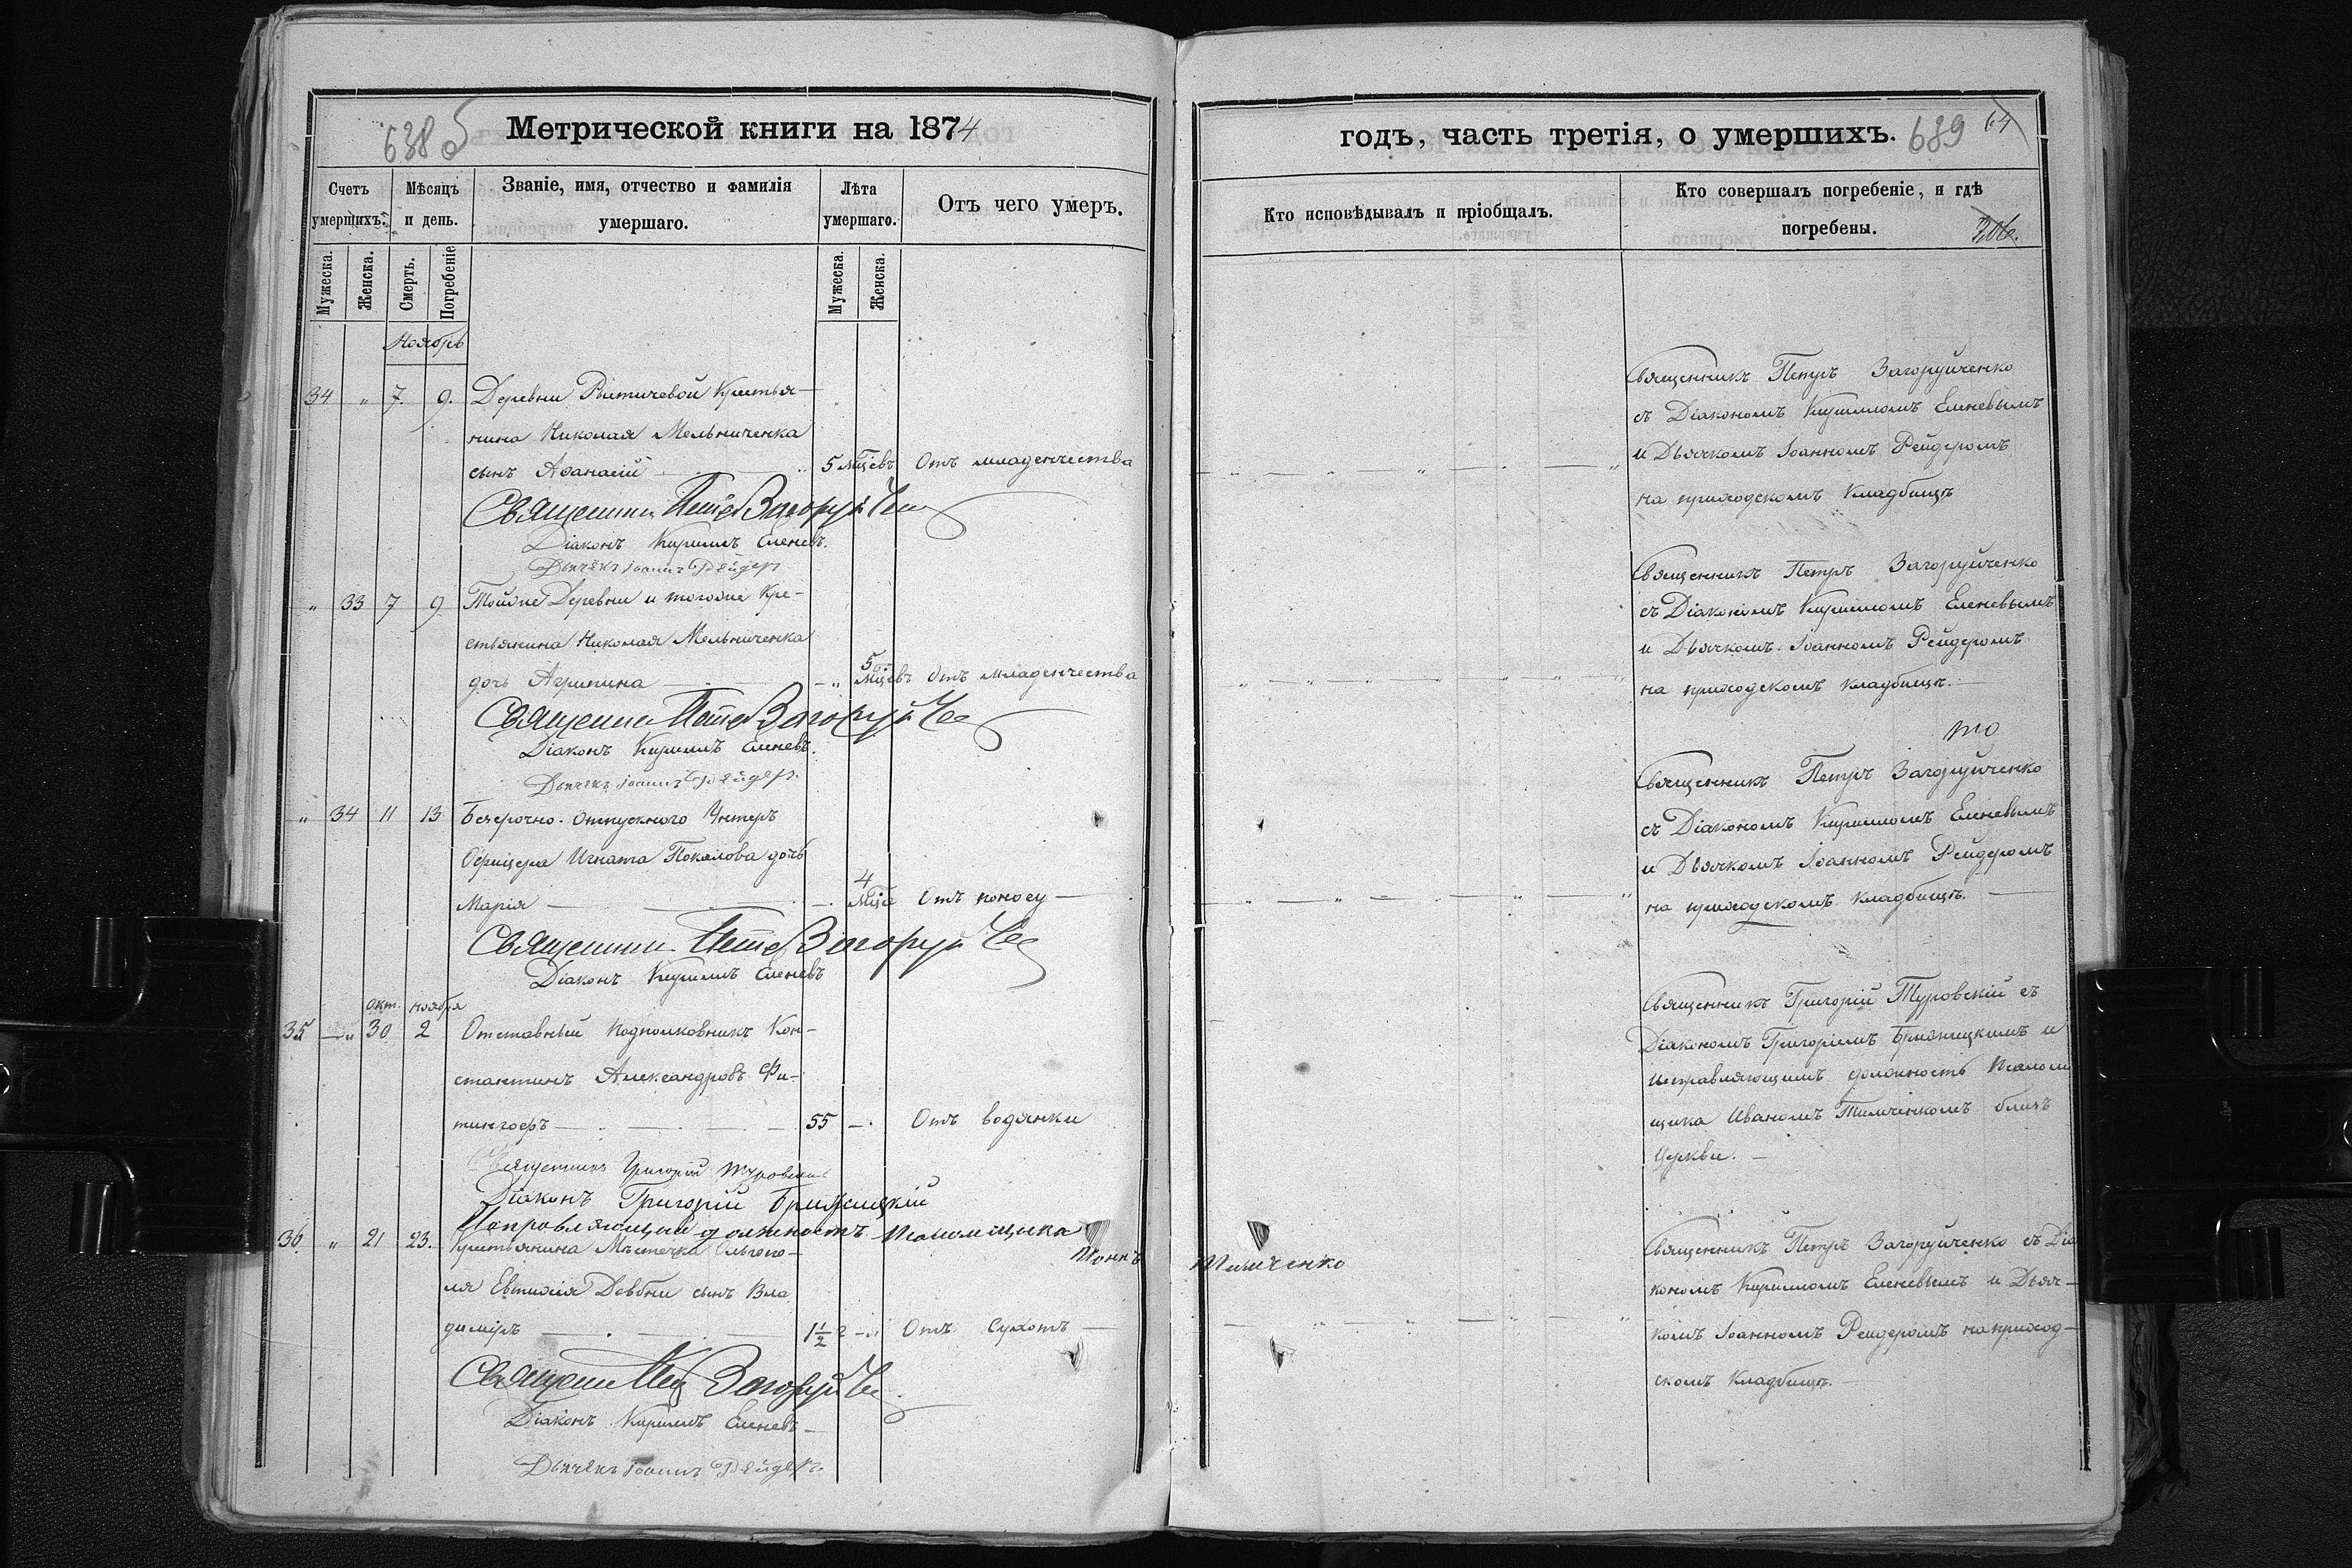 638 об
Метрической книги на 1874
Счетъ умершихъ.
Мѣсяцъ и день.
Званіе, имя, отчество и фамилія умершаго.
Лѣта умершаго.
Отъ чего умеръ.
Мужеска.
Женска.
Смерть.
Погребеніе
Мужеска.
Женска.
Ноябрь
34 " 7. 9. Деревни Рытичевой Крестья-
нина Николая Мельниченка
сынъ Аѳанасій " 5 мцевъ Отъ младенчества
Священникъ Петръ Загоруйченко
Діаконъ Кириллъ Еленевъ.
Дьячекъ Іоаннъ Рейдеръ
" 33 7 9 Тойже Деревни и тогоже Кре-
стьянина Николая Мельниченка
дочь Агрипина " 5 мцевъ Отъ младенчества
Священникъ Петръ Загоруйченко
Діаконъ Кириллъ Еленевъ.
Дьячекъ Іоаннъ Рейдеръ.
" 34 11 13 Безсрочно-отпускного Унтеръ
Офицера Игната Покалова дочь
Марія 4 мца Отъ поносу
Священникъ Петръ Загоруйченко
Діаконъ Кириллъ Еленевъ
окт. ноября
35 " 30 2 Отставный подполковникъ Кон-
стантинъ Александровъ Фи-
тингофъ 55 Отъ водянки
Священникъ Григорій Туровскій
Діаконъ Григорій Брижицкій
Исправляющій должность псаломщика
Иоаннъ Тимченко
36. " 21 23. Крестьянина Мѣстечка Ольгопо-
ля Евтихія Довбни сынъ Вла
диміръ 1½ г " Отъ Сухотъ
Священникъ Петръ Загоруйченко
Діаконъ Кириллъ Еленевъ
Дьячекъ Іоаннъ Рейдеръ.
годъ, часть третія, о умершихъ.
689
64
Кто исповѣдывалъ и пріобщалъ.
Кто совершалъ погребеніе, и гдѣ
погребены.
306.
Священникъ Петръ Загоруйченко
съ Діакономъ Кирилломъ Еленевымъ
и Дьячкомъ Іоанномъ Рейдеромъ
на приходскомъ кладбищѣ
Священникъ Петръ Загоруйченко
съ Діакономъ Кирилломъ Еленевымъ
и Дьячкомъ Іоанномъ Рейдеромъ
на приходскомъ кладбищѣ.
то
Священникъ Петръ Загоруйченко
съ Діакономъ Кирилломъ Еленевымъ
и Дьячкомъ Іоанномъ Рейдеромъ
на приходскомъ кладбищѣ.
Священникъ Григорій Туровскій съ
Діакономъ Григоріемъ Брижицкимъ и
исправляющимъ должность псалом
щика Иваномъ Тимченкомъ близъ
Церкви.
Священникъ Петръ Загоруйченко съ Діа
кономъ Кирилломъ Еленевымъ и Дьяч-
комъ Іоанномъ Рейдеромъ на приход-
скомъ кладбищѣ.